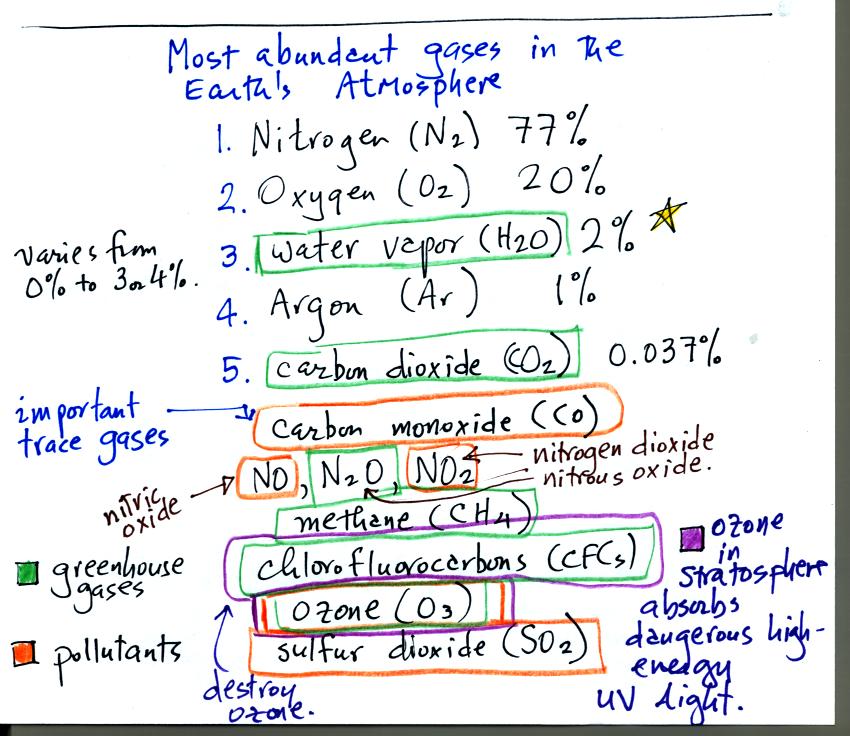 Most abundant gases in the
Earth's Atmosphere
1. Nitrogen (N2) 77%
2. Oxygen (O2) 20%
3. water vapor (H2O) 2%
varies from
0% to 3 or 4%.
4. Argon (Ar) 1%
5. carbon dioxide (CO2) 0.037%
important
trace gases
carbon monoxide (CO)
NO, N2O, NO2
nitrogen dioxide
nitrous oxide.
nitric
oxide
methane (CH4)
chlorofluorocarbons (CFCs)
ozone (O3)
sulfur dioxide (SO2)
greenhouse
gases
pollutants
destroy
ozone.
ozone
in
stratosphere
absorbs
dangerous high-
energy
UV light.